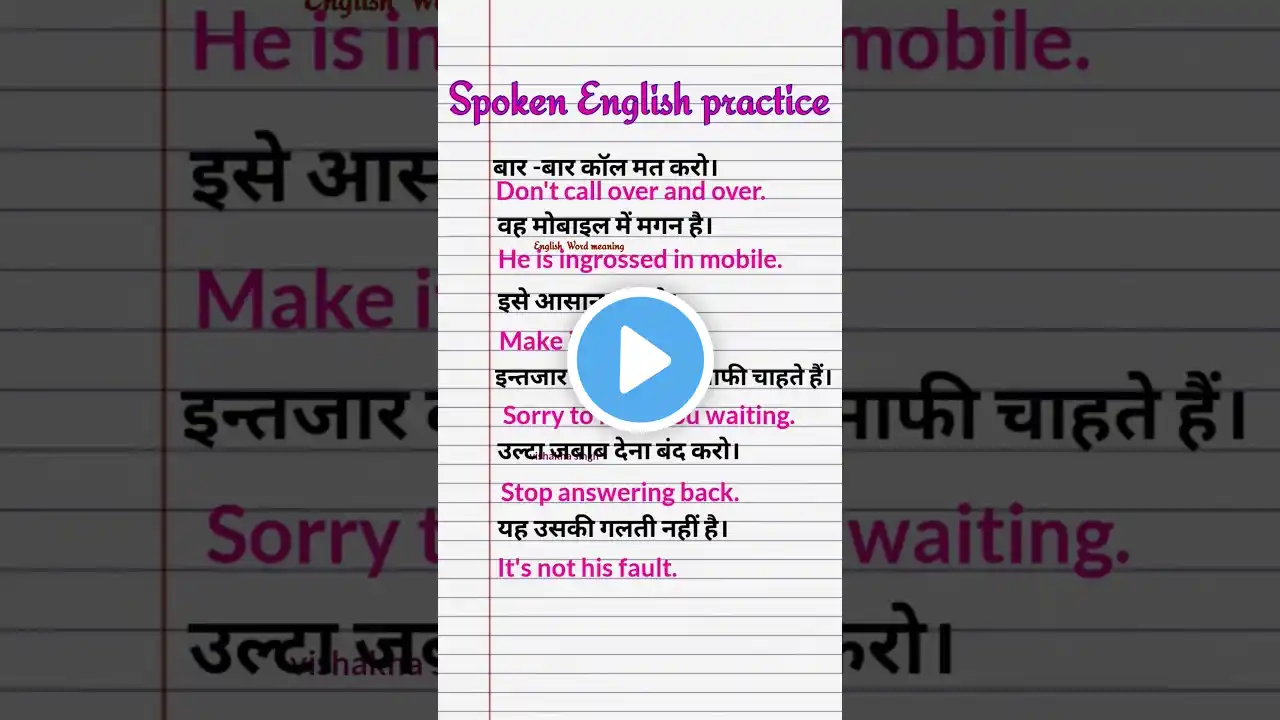 Spoken English practice
बार -बार कॉल मत करो।
Don't call over and over.
वह मोबाइल में मगन है।
English Word meaning
He is ingrossed in mobile.
इसे आसान
Make
इन्तजार चाहते हैं।
Sorry to waiting.
उल्टा जबाब देना बंद करो।
vishakha singh
Stop answering back.
यह उसकी गलती नहीं है।
It's not his fault.